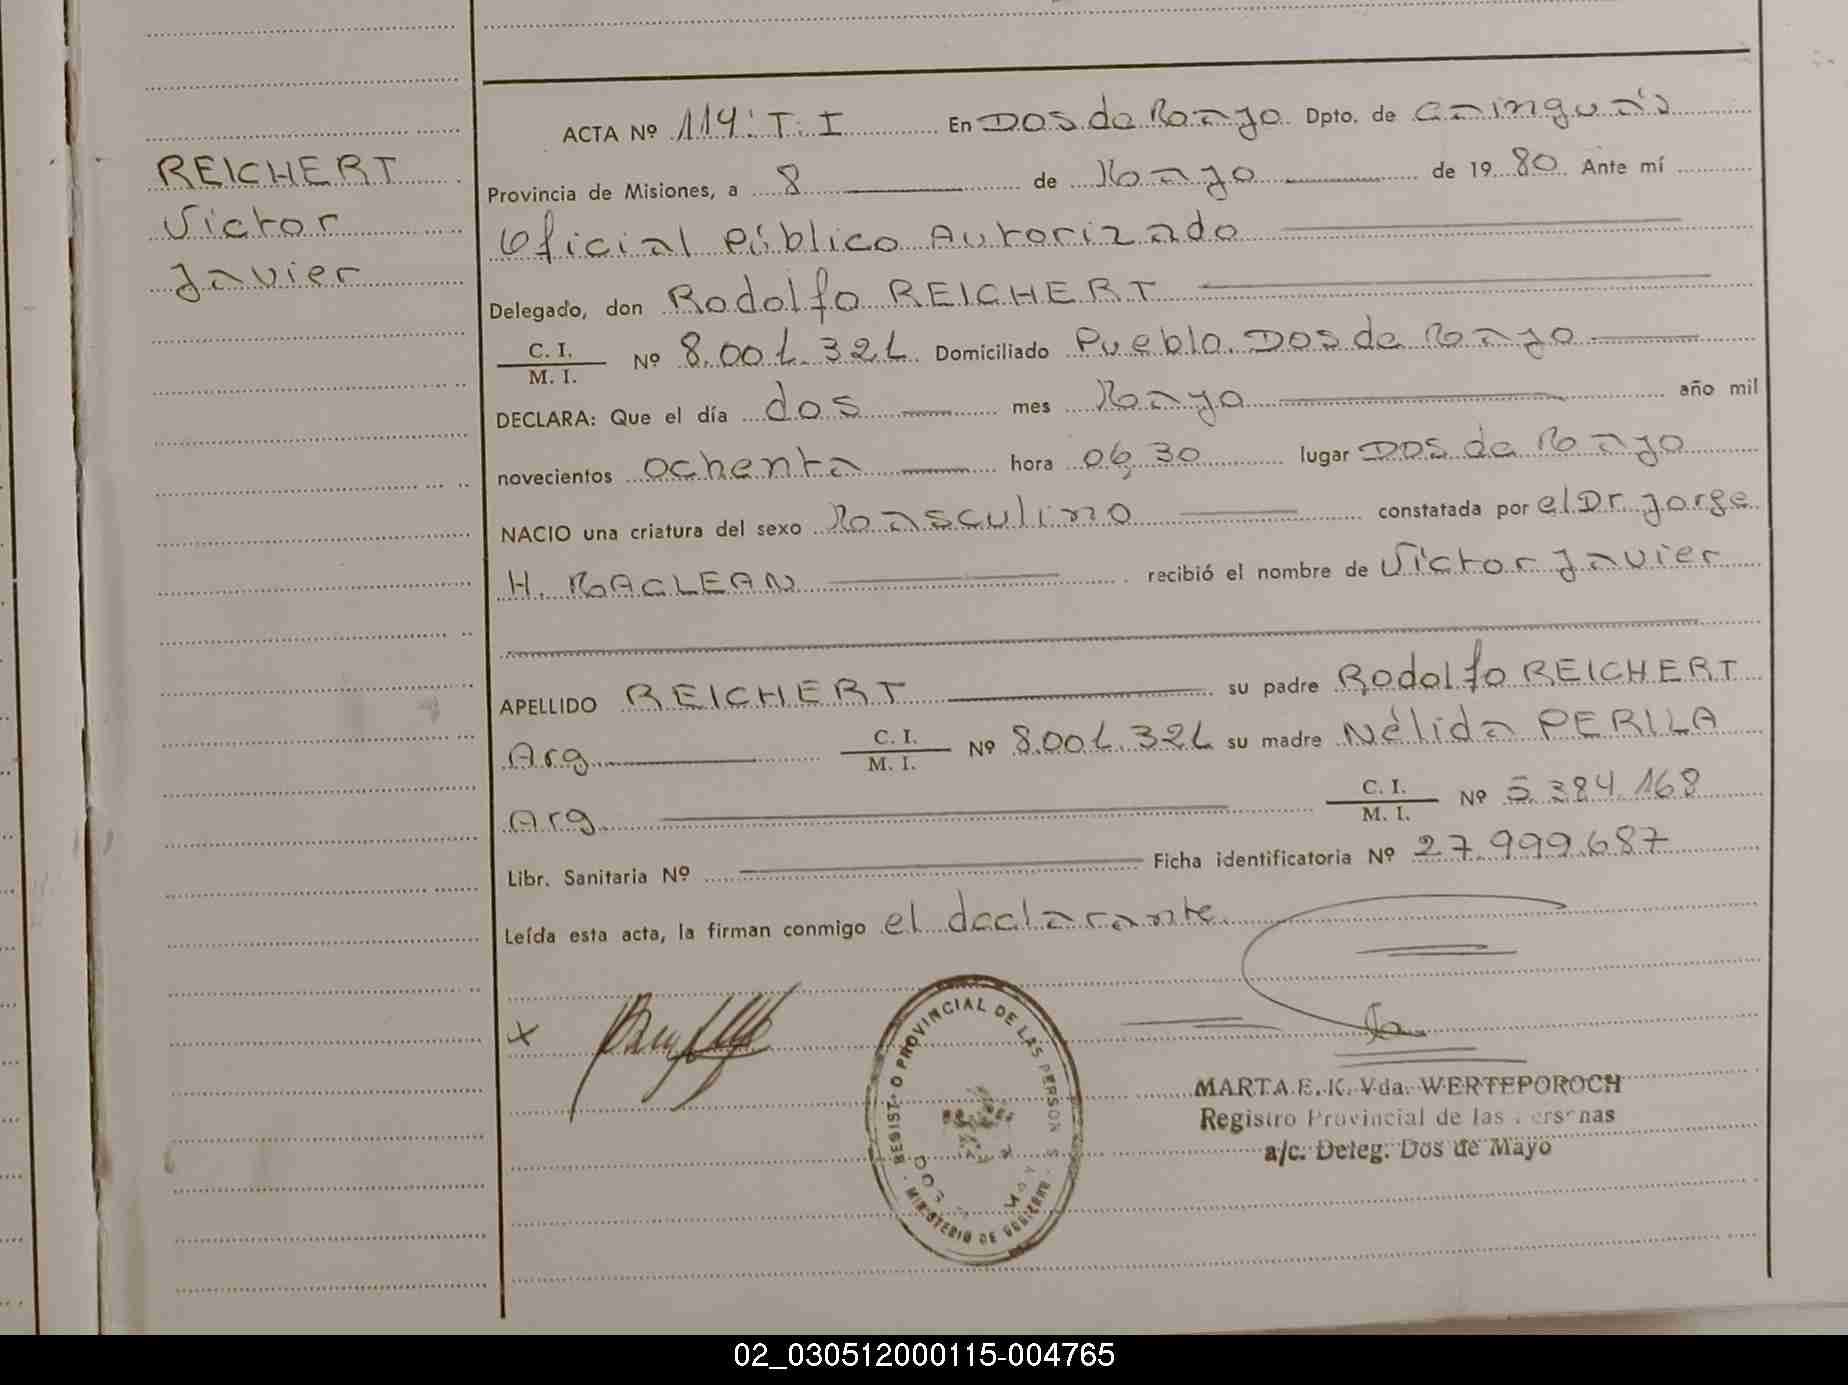 REICHERT
Victor
Javier
ACTA Nº 114: T: I En Dos de Mayo Dpto. de Cainguás
Provincia de Misiones, a 8 de Mayo de 1980 Ante mí
Oficial Público Autorizado
Delegado, don Rodolfo REICHERT
C. I.
M. I.
Nº 8.001.321 Domiciliado Pueblo Dos de Mayo
DECLARA: Que el día dos mes Mayo año mil
novecientos ochenta hora 06,30 lugar Dos de Mayo
NACIO una criatura del sexo Masculino constatada por el Dr. Jorge
H. MACLEAN recibió el nombre de Victor Javier
APELLIDO REICHERT su padre Rodolfo REICHERT
Arg C. I.
M. I.
Nº 8.001.321 su madre Nélida PERILA
Arg. C. I.
M. I.
Nº 5.384.168
Libr. Sanitaria Nº Ficha identificatoria Nº 27.999.687
Leída esta acta, la firman conmigo el declarante
X
PROVINCIAL DE LAS
MINISTERIO DE
MARTA E. K. Vda. WERTEPOROCH
Registro Provincial de las
a/c. Deleg. Dos de Mayo
02_030512000115-004765